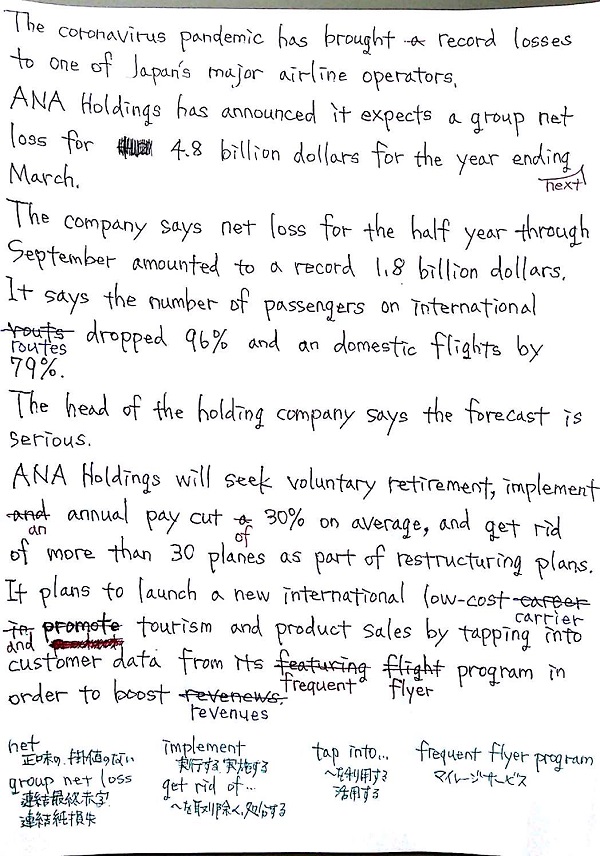 The coronavirus pandemic has brought a record losses
to one of Japan's major airline operators.
ANA Holdings has announced it expects a group net
loss for 4.8 billion dollars for the year ending
next
March.
The company says net loss for the half year through
September amounted to a record 1.8 billion dollars.
It says the number of passengers on international
routs dropped 96% and an domestic flights by
routes
79%.
The head of the holding company says the forecast is
serious.
ANA Holdings will seek voluntary retirement, implement
and annual pay cut a 30% on average, and get rid
an of
of more than 30 planes as part of restructuring plans.
It plans to launch a new international low-cost career
carrier
in promote tourism and product sales by tapping into
and
customer data from its featuring flight program in
frequent flyer
order to boost revenews.
revenues
net implement tap into... frequent flyer program
正味の、掛値のない 実行する、実施する 〜を利用する マイレージサービス
group net loss get rid of... 活用する
連結最終赤字 〜を取り除く、処分する
連結純損失